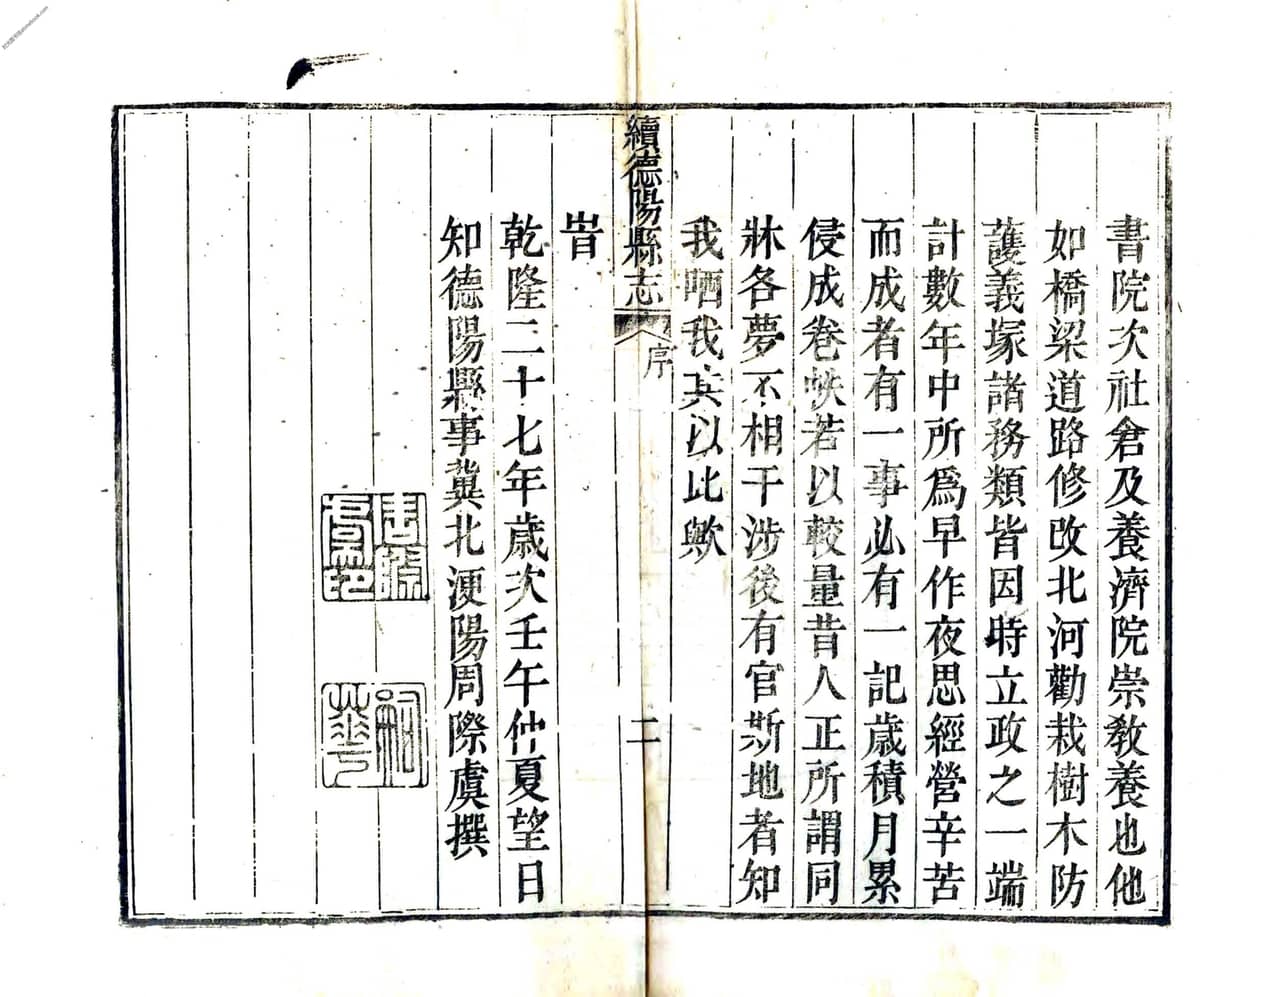 書院次社倉及養濟院崇教養也他
如橋梁道路修改北河勸栽樹木防
護義塚諸務類皆因時立政之一端
計數年中所爲早作夜思經營辛苦
而成者有一事必有一記歲積月累
侵成卷帙若以較量昔人正所謂同
牀各夢不相干涉後有官斯地者知
我哂我其以比歟
續德陽縣志
序
二
旹
乾隆二十七年歲次壬午仲夏望日
知德陽縣事冀北浭陽周際虞撰